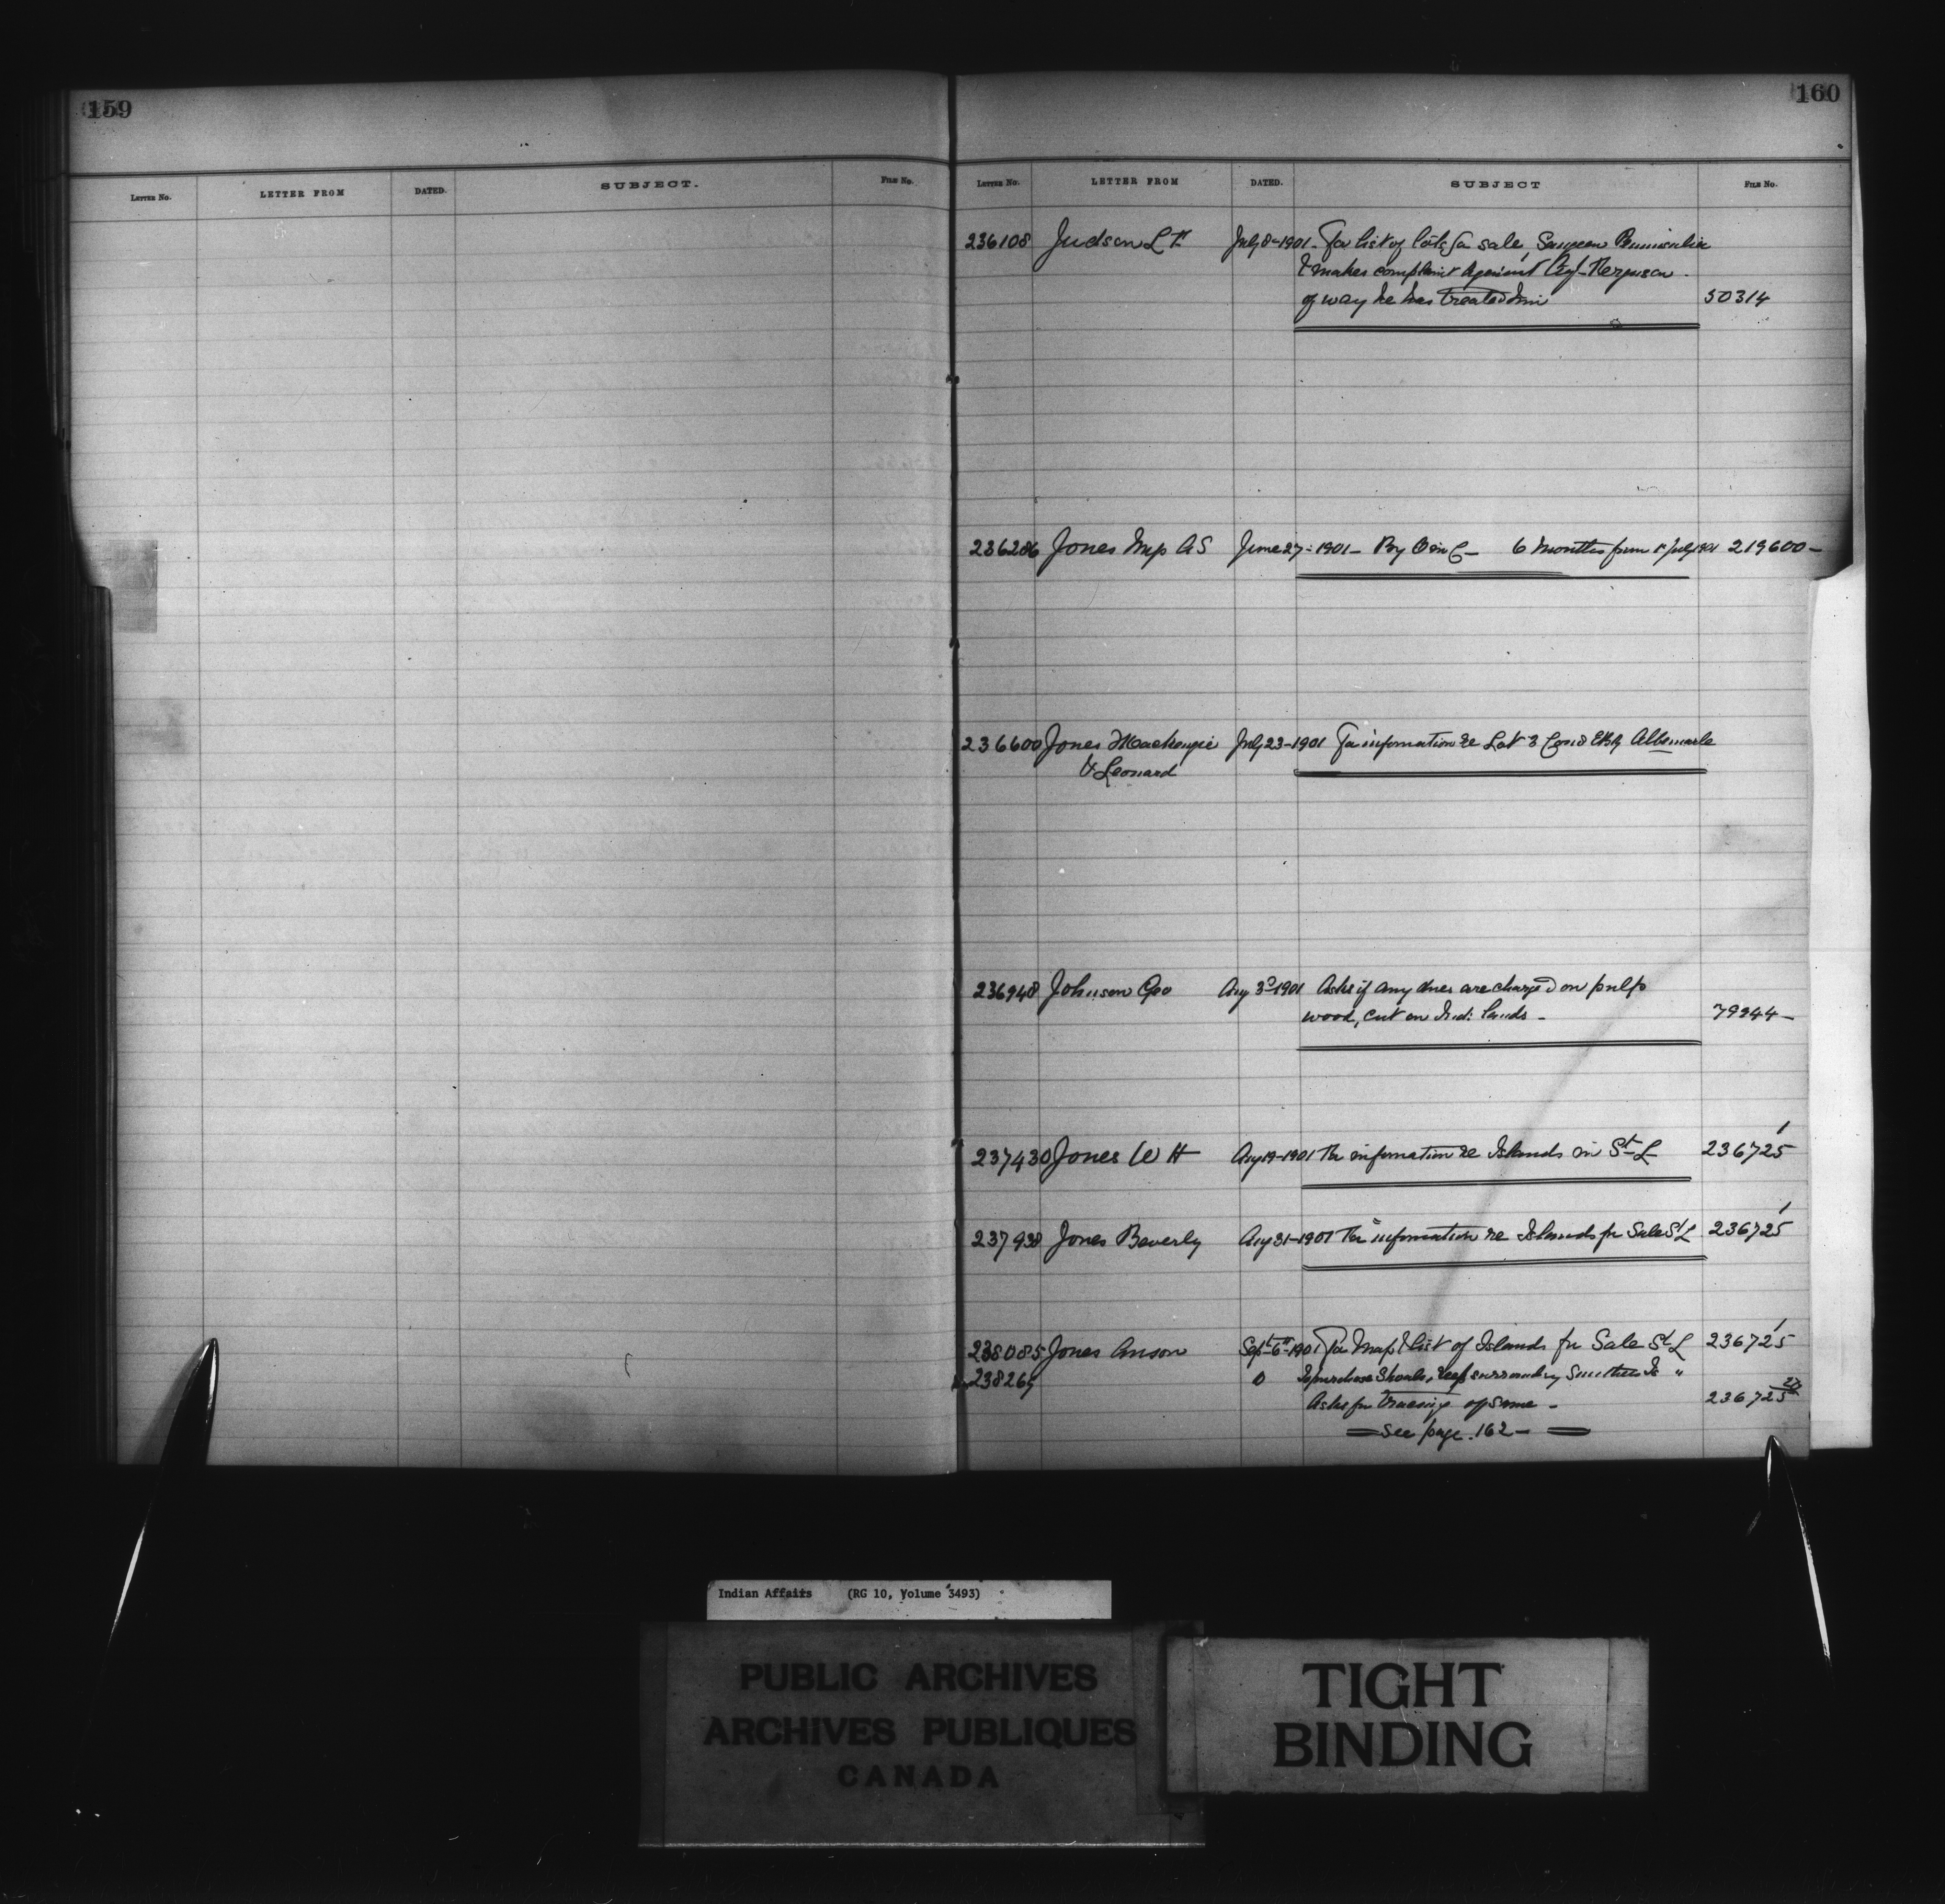 159
LETTER NO. LETTER FROM DATED. SUBJECT. FILE NO.
160
LETTER NO. LETTER FROM DATED. SUBJECT FILE NO.
236108 Judson L July 8-1901- For list of lots for sale, Saugeen Peninsula
& makes complaint against Agt Ferguson
of way he has treated him 50314
236286 Jones A S June 27-1901- By O in C- 6 Months from 1st July 1901 219600-
236600 Jones Mackenzie July 23-1901 For information re Lot 3 Con 8 EBR Albemarle
& Leonard
236948 Johnson Geo Aug 3rd 1901 Asks if any dues are charged on pulp
wood, cut on Ind: lands- 79944-
237430 Jones W H Aug 19-1901 For information re Islands in St L 236725 1
237938 Jones Beverly Aug 31-1901 For information re Islands for Sale St L 236725 1
238085 Jones Anson Sept 6th-1901 For Map & list of Islands for Sale St L 236725 1
To purchase Shoals, reef surrounding Is "
Asks for tracing of same - 236725
= See page. 162- =
Indian Affairs (RG 10, Volume 3493)
PUBLIC ARCHIVES
ARCHIVES PUBLIQUES
CANADA
TIGHT
BINDING